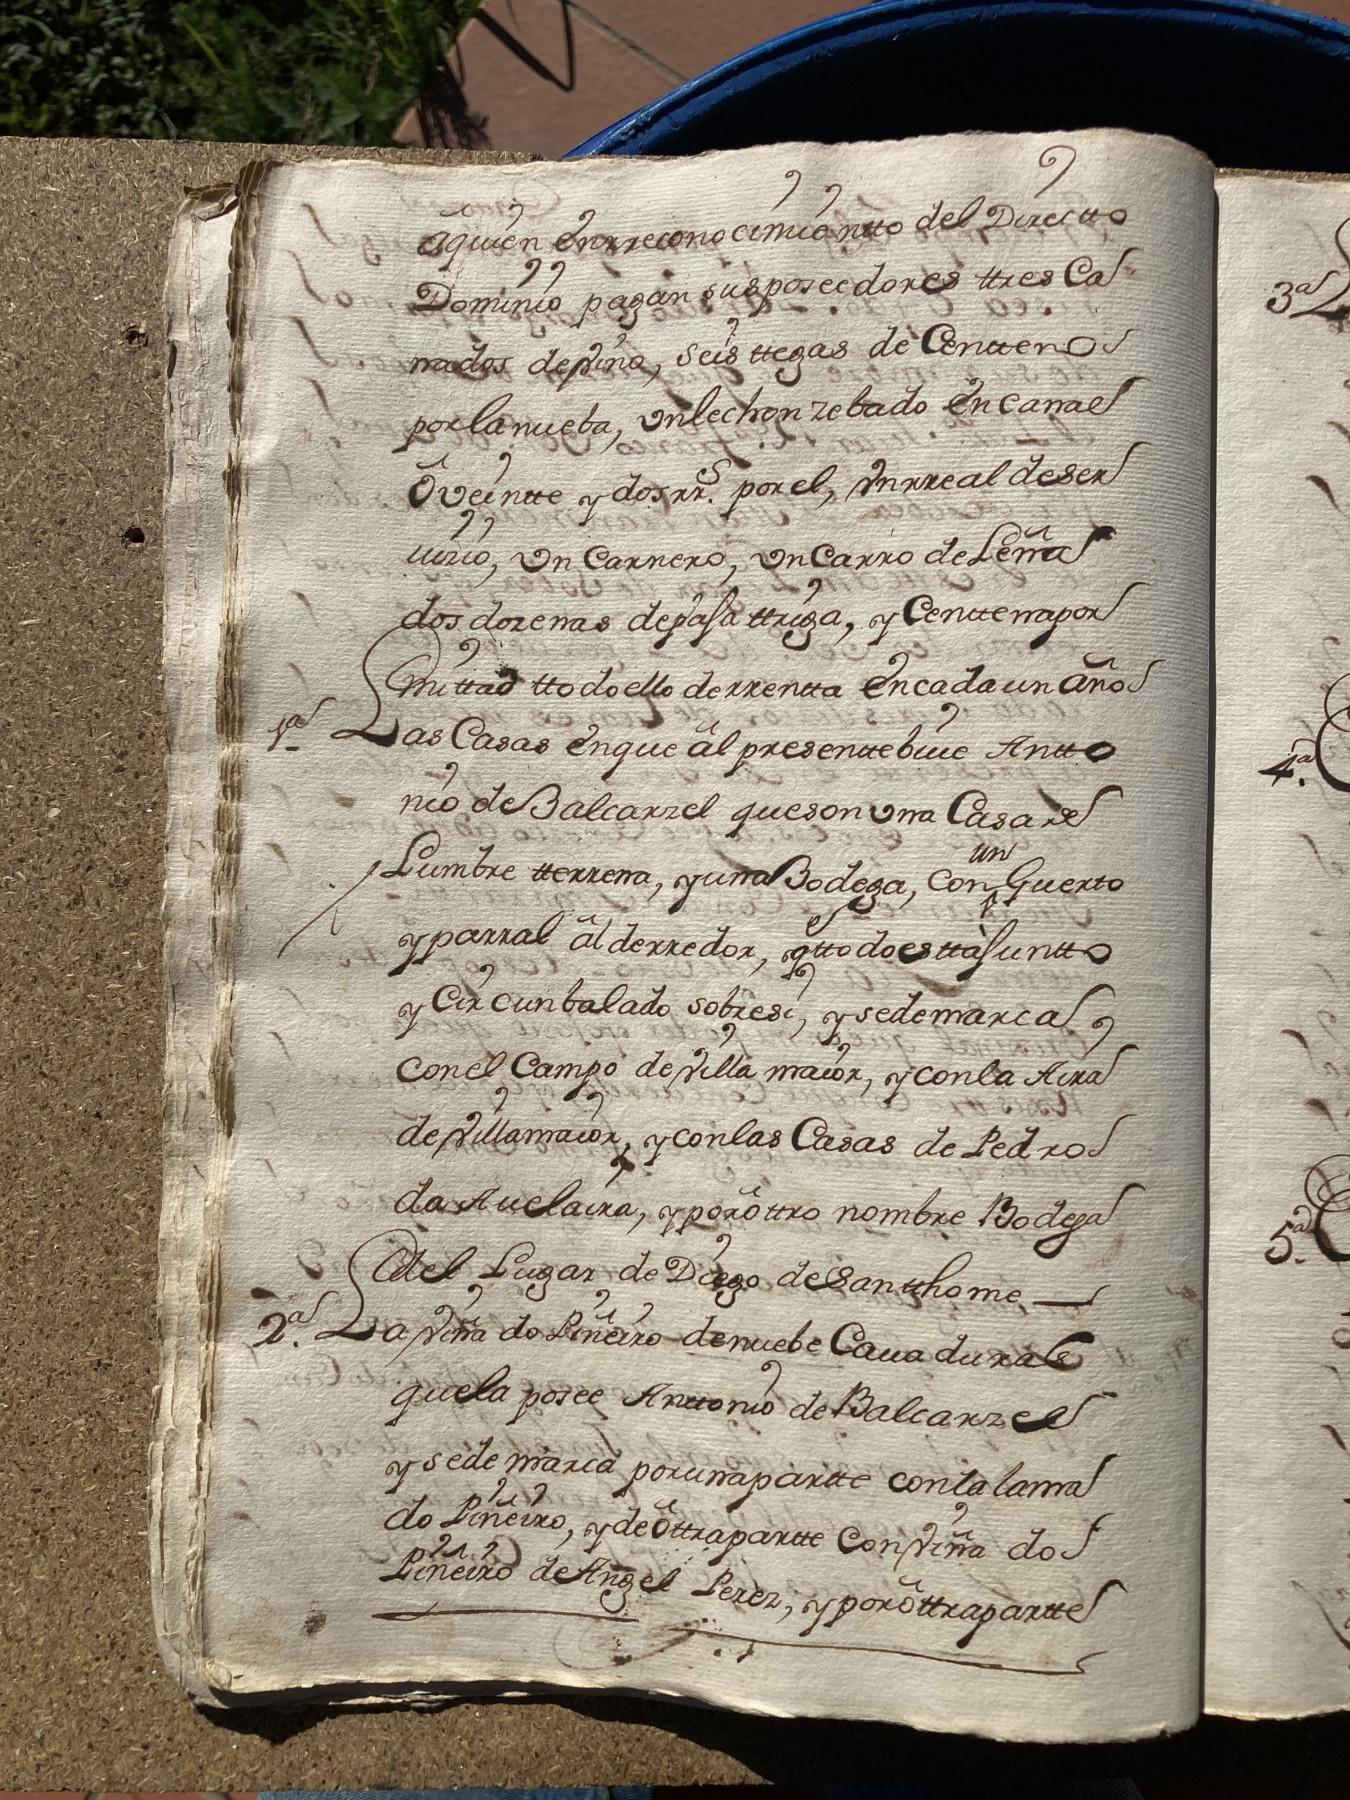 aquien enrreconocimientto del Directto
Dominio pagan susposeedores ttres Ca
nados de vino, seis ttegas de Centteno
por la nueba, un lechon zebado en canal
ô veintte y dos rrs. por el, vn rreal de ser
uizio, vn Carnero, vn Carro de Leña
dos dozenas de pasa ttriga, y Centtena por
mittad ttodo ello de rrentta en cada un año
1ª Las Casas en que âl presentte biue Antto
nio de Balcarzel que son vna Casa de
Lumbre tterrena, y una Bodega, con un Guerto
y parral âl derredor, q ttodo estta juntto
y Circunbalado sobre si, y se demarca
con el Campo de Villa maior, y con la Aira
de Villamaior, y con las Casas de Pedro
da Auelaira, y por ôttro nombre Bodega
del Lugar de Diego de Santthome,
2ª. La Viña do Piñeiro de nuebe Cauaduras
que la posee Anttonio de Balcarzel
y se demarca por una partte con la lama
do Piñeiro, y de ôttra partte con Viña do
Piñeiro de Angel Perez, y por ôttra partte
3ª
4ª.
5ª.